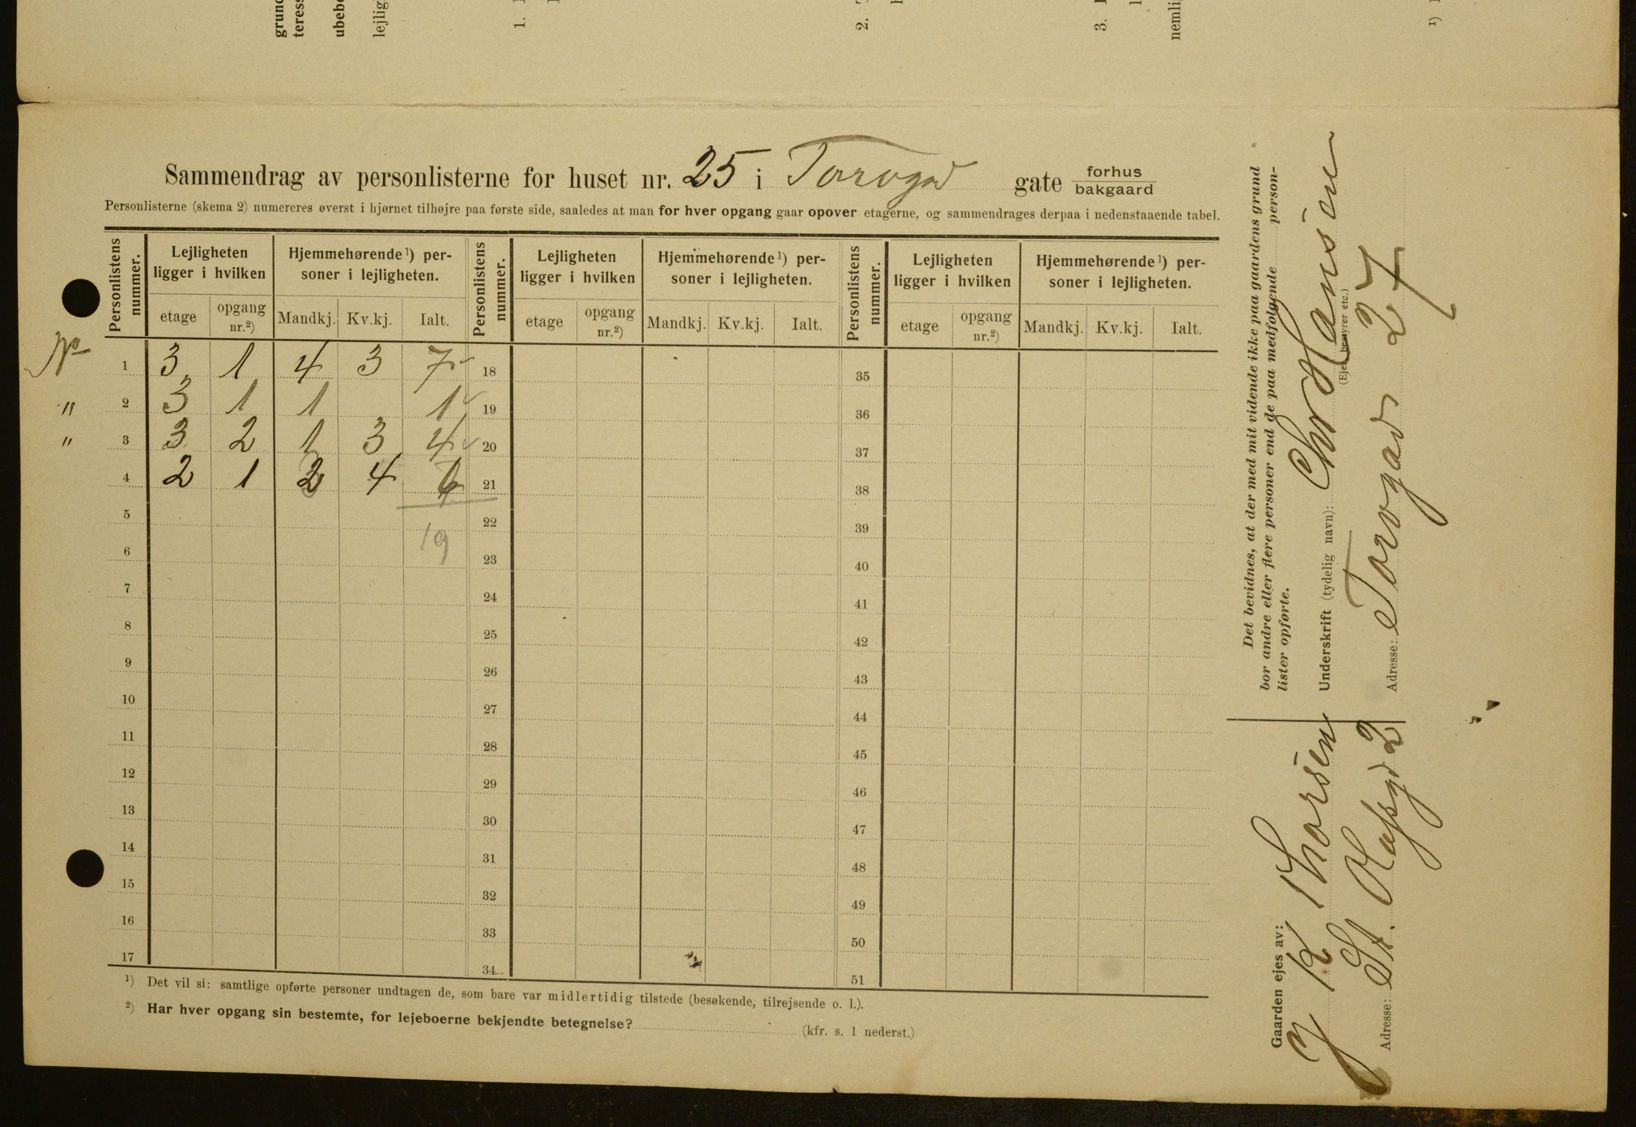 grun
teress
ubebo
lejlig
1.
2.
3.
nemli
¹)
Sammendrag av personlisterne for huset nr. 25 i Torvgd gate forhus bakgaard
Personlisterne (skema 2) numereres øverst i hjørnet tilhøjre paa første side, saaledes at man for hver opgang gaar opover etagerne, og sammendrages derpaa i nedenstaaende tabel.
Personlistens nummer. Lejligheten ligger i hvilken Hjemmehørende¹) personer i lejligheten. Personlistens nummer. Lejligheten ligger i hvilken Hjemmehørende¹) personer i lejligheten. Personlistens nummer. Lejligheten ligger i hvilken Hjemmehørende¹) personer i lejligheten.
etage opgang nr.²) Mandkj. Kv.kj. Ialt. etage opgang nr.²) Mandkj. Kv.kj. Ialt. etage opgang nr.²) Mandkj. Kv.kj. Ialt.
1 3 1 4 3 7 18 35
" 2 3 1 1 1 19 36
" 3 3 2 1 3 4 20 37
4 2 1 4 21 38
5 22 39
19
6 23 40
7 24 41
8 25 42
9 26 43
10 27 44
11 28 45
12 29 46
13 30 47
14 31 48
15 32 49
16 33 50
17 34 51
¹) Det vil si: samtlige opførte personer undtagen de, som bare var midlertidig tilstede (besøkende, tilrejsende o. l.).
²) Har hver opgang sin bestemte, for lejeboerne bekjendte betegnelse? (kfr. s. 1 nederst.)
Det bevidnes, at der med mit vidende ikke paa gaardens grund
bor andre eller flere personer end de paa medfølgende person-
lister opførte.
Underskrift (tydelig navn): Chr Hansen
(Ejer, bestyrer etc.)
Adresse: Torvgad 27
Gaarden ejes av:
J K Thorsen
Adresse: St. Olafsgd 2